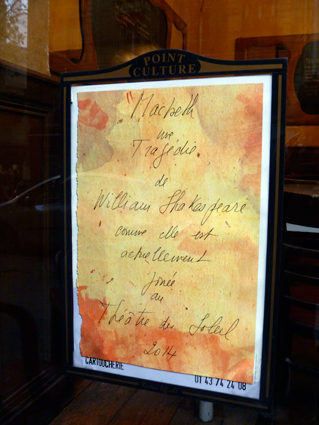 POINT
CULTURE
"Macbeth
une
Tragédie
de
William Shakespeare
comme elle est
actuellement
jouée
au
Théâtre du Soleil
2014
CARTOUCHERIE
01 43 74 24 08